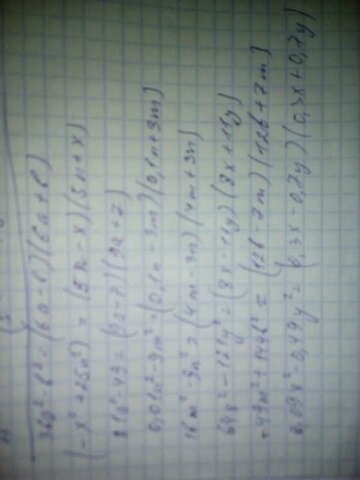 36a² - b² = (6a - b)(6a + b)
(-x² + 25n²) = (5n - x)(5n + x)
81a² - 49 = (9a - 7)(9a + 7)
0,01n² - 9m² = (0,1n - 3m)(0,1n + 3m)
16m² - 9n² = (4m - 3n)(4m + 3n)
64x² - 121y² = (8x - 11y)(8x + 11y)
-49m² + 144b² = (12b - 7m)(12b + 7m)
0,09x² - 0,49y² = (0,3x - 0,7y)(0,3x + 0,7y)